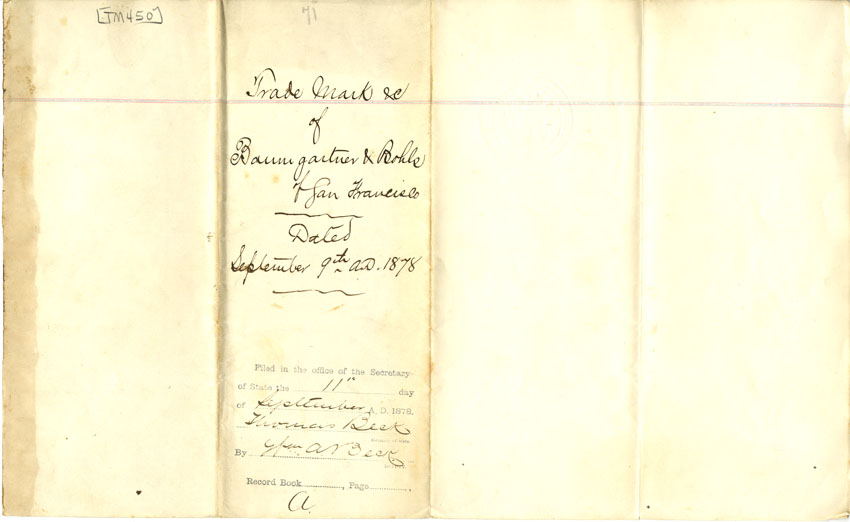 [TM450]
71
Trade Mark &c
of
Baumgartner & Rohls
of San Francisco
Dated
September 9th A.D. 1878
Filed in the office of the Secretary
of State the 11" day
of September A. D. 1878.
Thomas Beck
Secretary of State
By Wm. A Beck
Record Book , Page .
A.